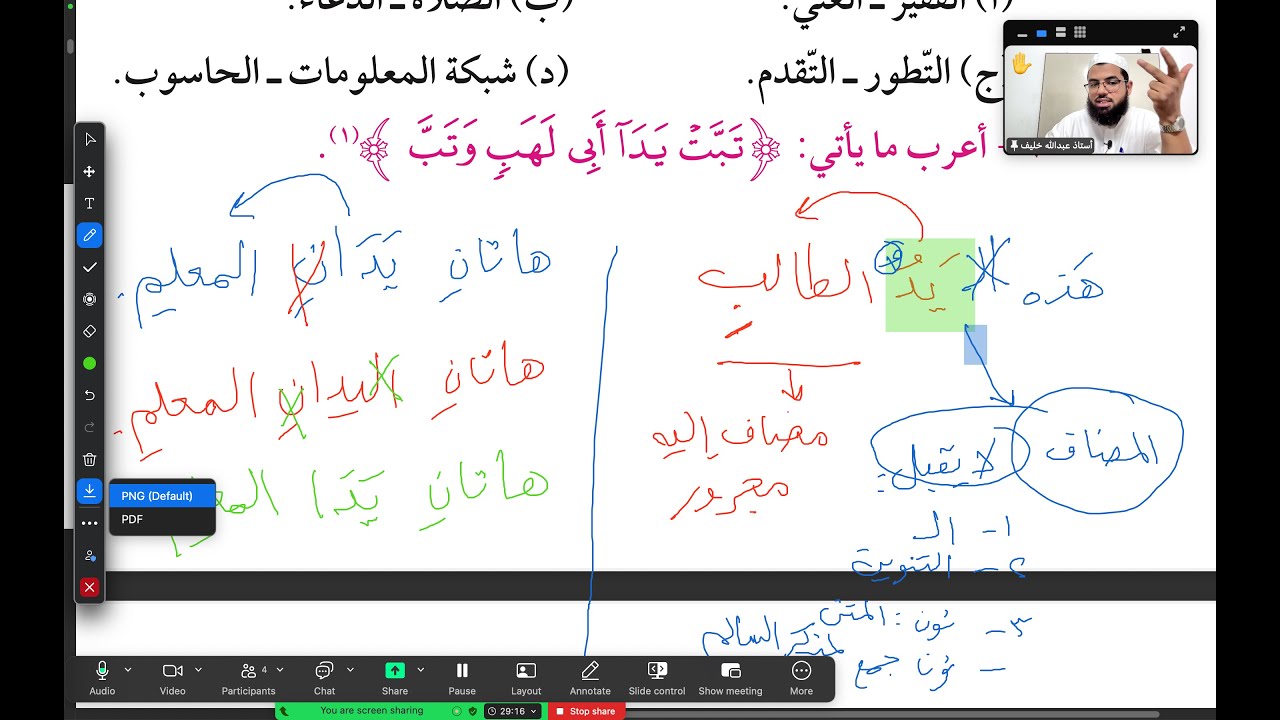 (أ) الفقير ـ الغني.
(ب) الصلاة ـ الدعاء.
(ج) التّطور ـ التّقدم.
(د) شبكة المعلومات ـ الحاسوب.
- أعرب ما يأتي: ﴿تَبَّتۡ يَدَآ أَبِى لَهَبٍ وَتَبَّ﴾(١).
أستاذ عبدالله خليف
هَذه الـ يَدُ الطالبِ
مضاف إليه
مجرور
المضاف
لا يقبل:
١- الـ
٢- التنوين
٣- نون: المثنى
- نون جمع المذكر السالم
هاتانِ يَدَانِ المعلمِ.
هاتانِ اليدانِ المعلمِ.
هاتانِ يَدَا
PNG (Default)
PDF
Audio
Video
Participants
4
Chat
Share
Pause
Layout
Annotate
Slide control
Show meeting
More
You are screen sharing
29:16
Stop share